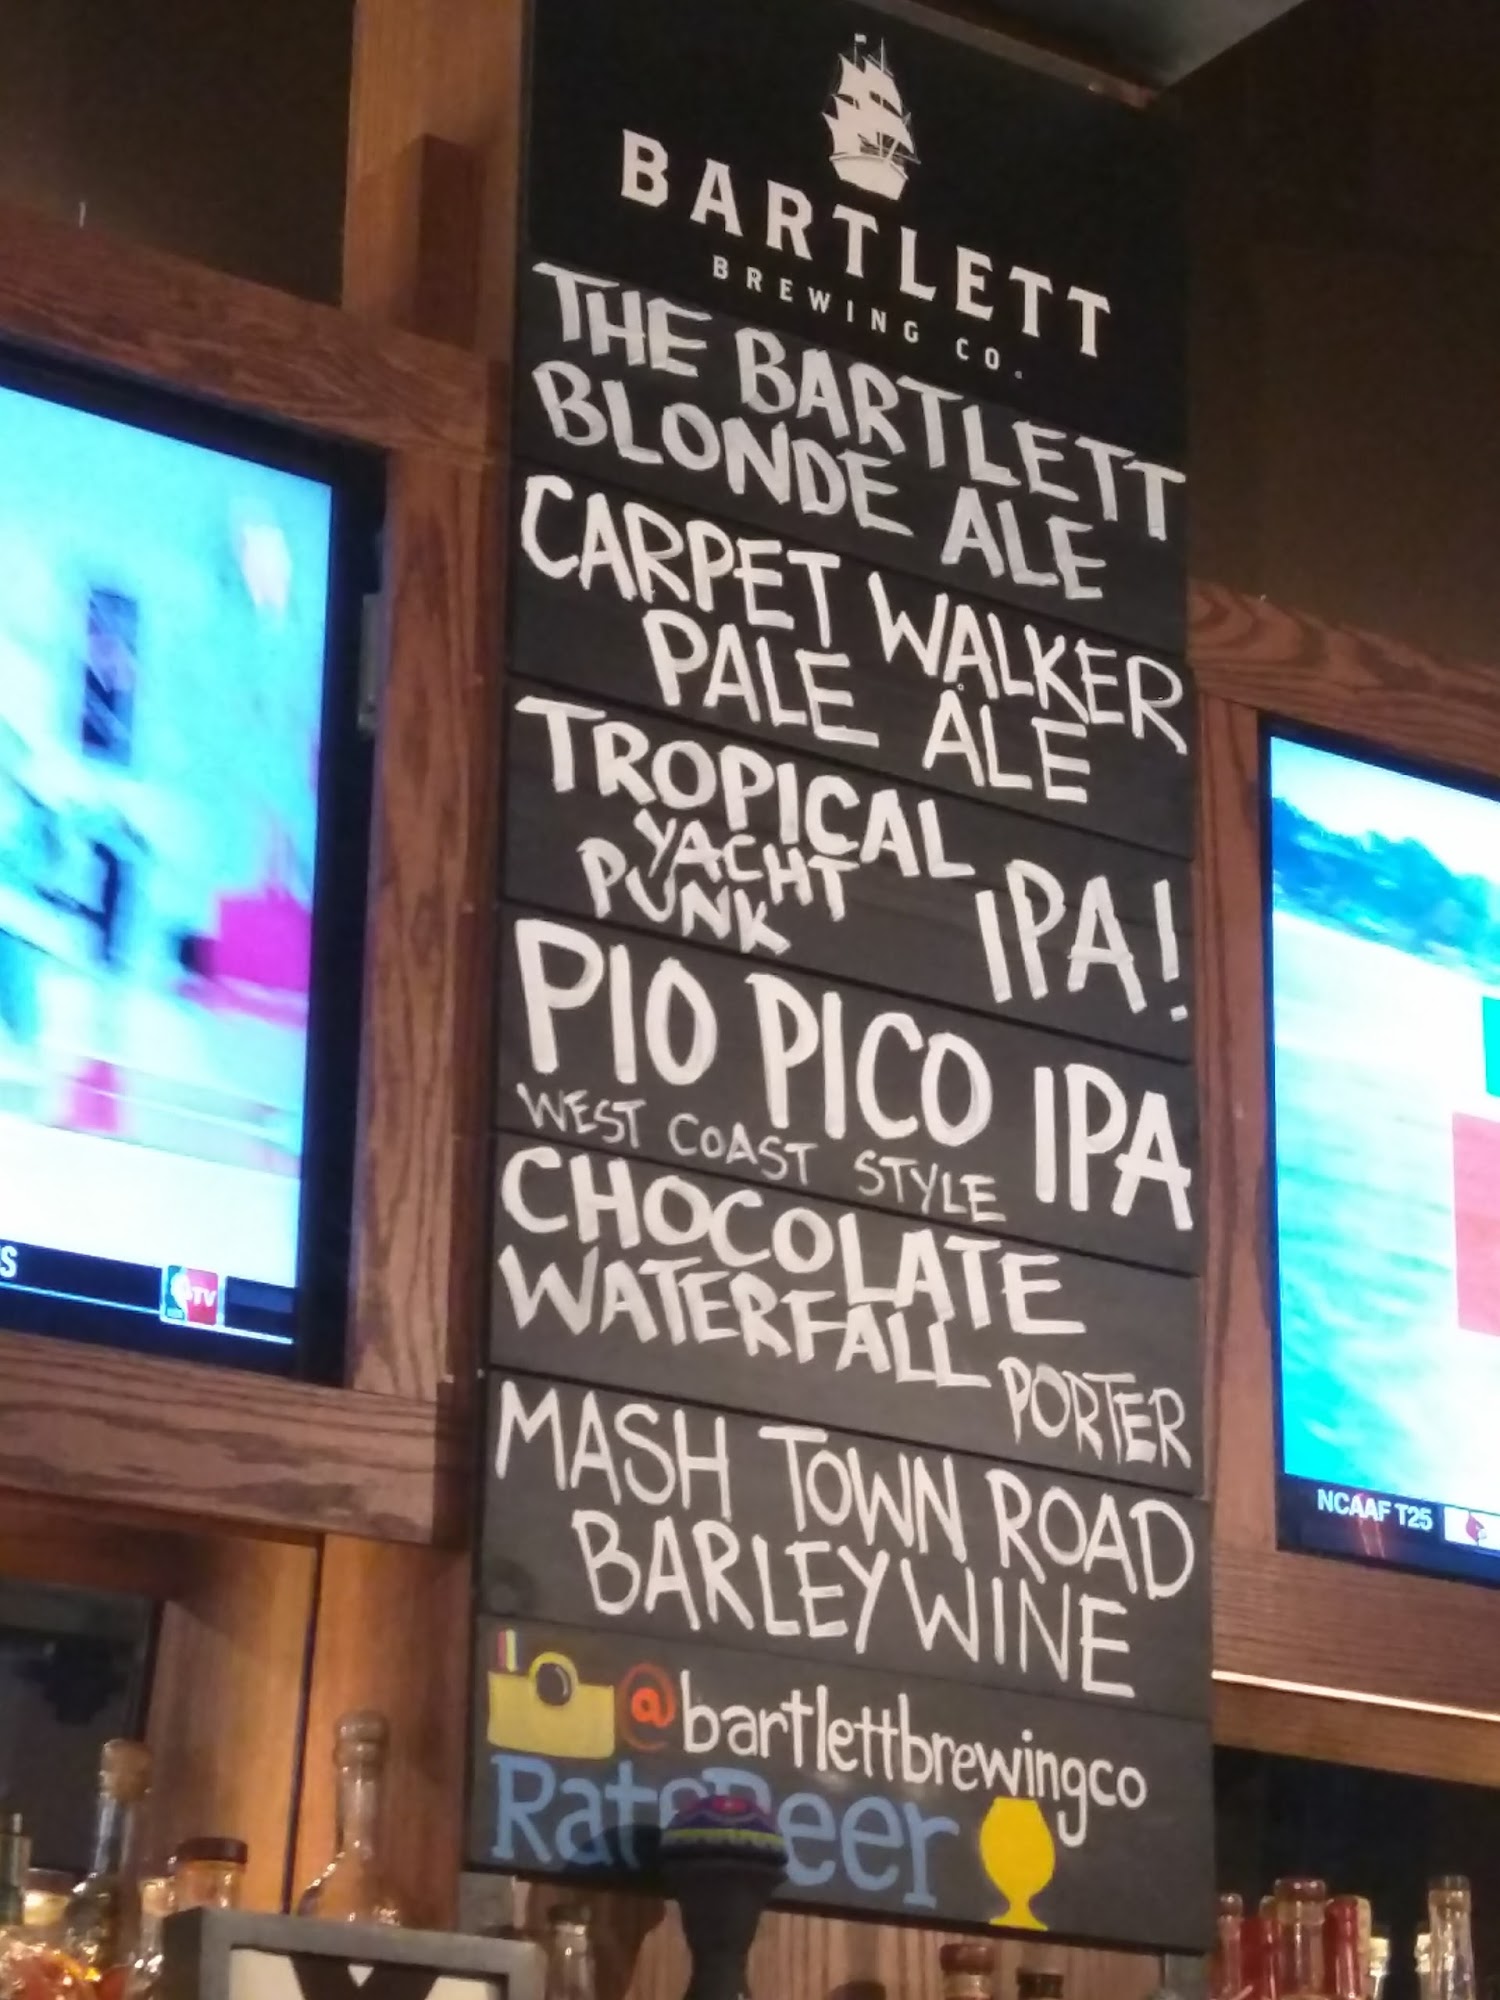 BARTLETT
BREWING CO.
THE BARTLETT
BLONDE ALE
CARPET WALKER
PALE ALE
TROPICAL
YACHT
PUNK
IPA!
PIO PICO IPA
WEST COAST STYLE
CHOCOLATE
WATERFALL
PORTER
MASH TOWN ROAD
BARLEYWINE
@bartlettbrewingco
RateBeer
TV
NCAAF T25